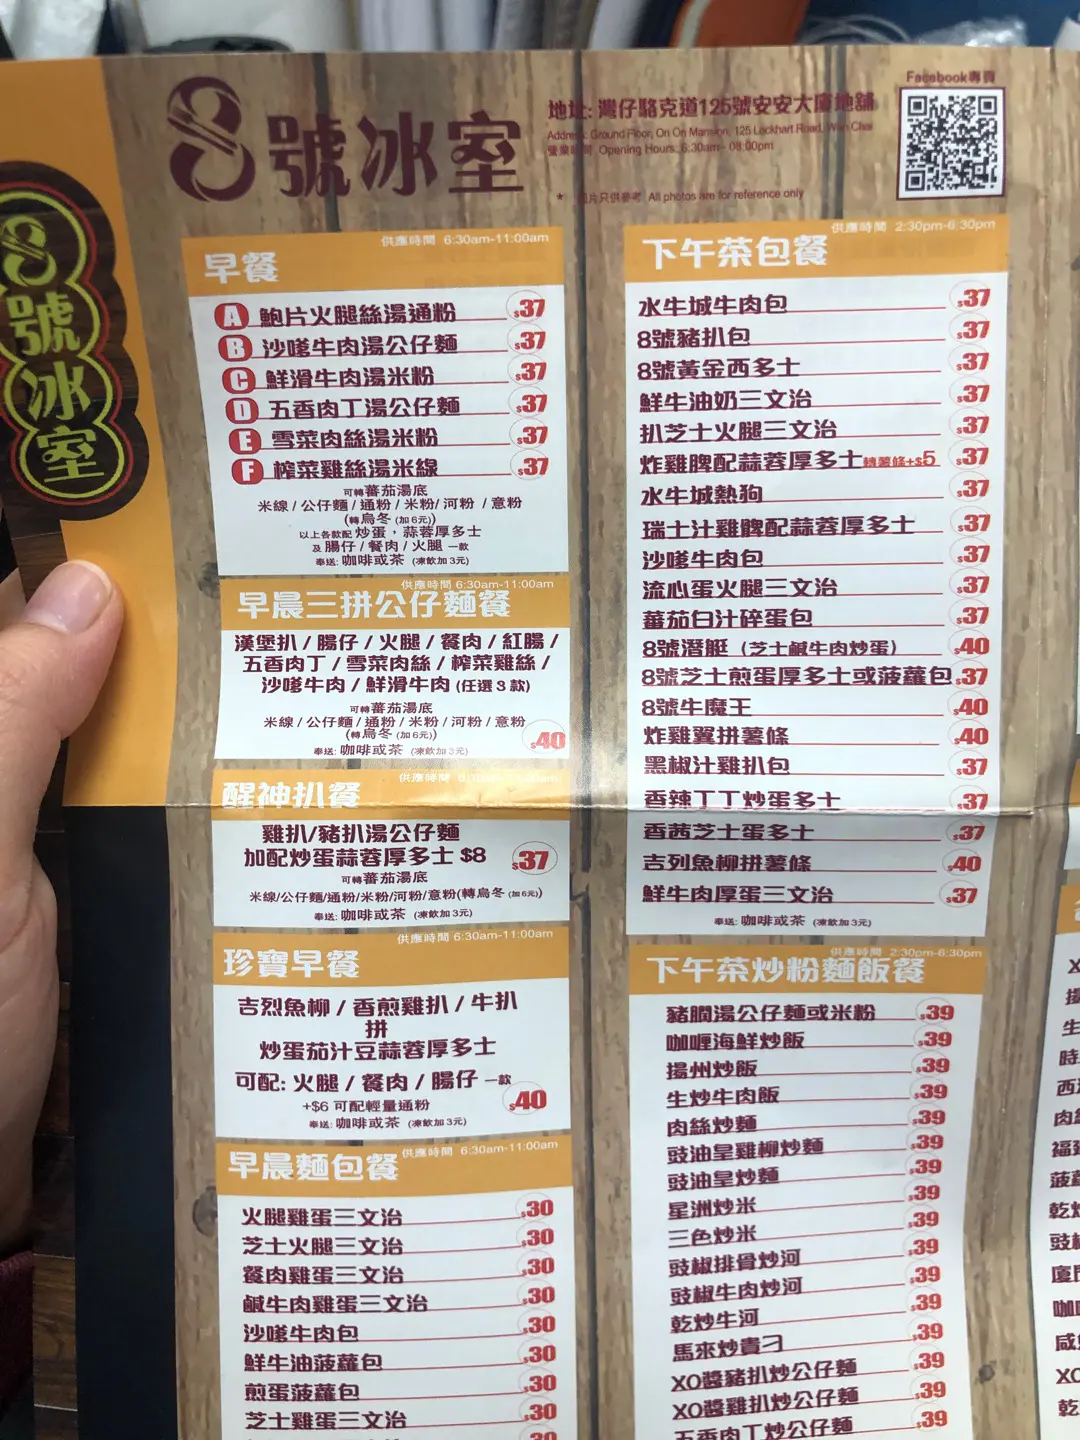 8號冰室
8號冰室
地址: 灣仔駱克道125號安安大廈地舖
Address: Ground Floor, On On Mansion, 125 Lockhart Road, Wan Chai
營業時間 Opening Hours: 6:30am - 08:00pm
* 圖片只供參考 All photos are for reference only
Facebook專頁
早餐 供應時間 6:30am-11:00am
A 鮑片火腿絲湯通粉 $37
B 沙嗲牛肉湯公仔麵 $37
C 鮮滑牛肉湯米粉 $37
D 五香肉丁湯公仔麵 $37
E 雪菜肉絲湯米粉 $37
F 榨菜雞絲湯米線 $37
可轉蕃茄湯底
米線 / 公仔麵 / 通粉 / 米粉 / 河粉 / 意粉
(轉烏冬 (加6元))
以上各款配 炒蛋，蒜蓉厚多士
及 腸仔 / 餐肉 / 火腿 一款
奉送: 咖啡或茶 (凍飲加3元)
早晨三拼公仔麵餐 供應時間 6:30am-11:00am
漢堡扒 / 腸仔 / 火腿 / 餐肉 / 紅腸 /
五香肉丁 / 雪菜肉絲 / 榨菜雞絲 /
沙嗲牛肉 / 鮮滑牛肉 (任選 3 款)
可轉蕃茄湯底
米線 / 公仔麵 / 通粉 / 米粉 / 河粉 / 意粉
(轉烏冬 (加6元))
奉送: 咖啡或茶 (凍飲加3元)
$40
醒神扒餐 供應時間
雞扒/豬扒湯公仔麵
加配炒蛋蒜蓉厚多士 $8
$37
可轉蕃茄湯底
米線/公仔麵/通粉/米粉/河粉/意粉(轉烏冬 (加6元))
奉送: 咖啡或茶 (凍飲加3元)
珍寶早餐 供應時間 6:30am-11:00am
吉烈魚柳 / 香煎雞扒 / 牛扒
拼
炒蛋茄汁豆蒜蓉厚多士
可配: 火腿 / 餐肉 / 腸仔 一款
+$6 可配輕量通粉
奉送: 咖啡或茶 (凍飲加3元)
$40
早晨麵包餐 供應時間 6:30am-11:00am
火腿雞蛋三文治 $30
芝士火腿三文治 $30
餐肉雞蛋三文治 $30
鹹牛肉雞蛋三文治 $30
沙嗲牛肉包 $30
鮮牛油菠蘿包 $30
煎蛋菠蘿包 $30
芝士雞蛋三文治 $30
下午茶包餐 供應時間 2:30pm-6:30pm
水牛城牛肉包 $37
8號豬扒包 $37
8號黃金西多士 $37
鮮牛油奶三文治 $37
扒芝士火腿三文治 $37
炸雞脾配蒜蓉厚多士 轉薯條+$5 $37
水牛城熱狗 $37
瑞士汁雞髀配蒜蓉厚多士 $37
沙嗲牛肉包 $37
流心蛋火腿三文治 $37
蕃茄白汁碎蛋包 $37
8號潛艇 (芝士鹹牛肉炒蛋) $40
8號芝士煎蛋厚多士或菠蘿包 $37
8號牛魔王 $40
炸雞翼拼薯條 $40
黑椒汁雞扒包 $37
香辣丁丁炒蛋多士 $37
香茜芝士蛋多士 $37
吉列魚柳拼薯條 $40
鮮牛肉厚蛋三文治 $37
奉送: 咖啡或茶 (凍飲加3元)
下午茶炒粉麵飯餐 供應時間 2:30pm-6:30pm
豬膶湯公仔麵或米粉 $39
咖喱海鮮炒飯 $39
揚州炒飯 $39
生炒牛肉飯 $39
肉絲炒麵 $39
豉油皇雞柳炒麵 $39
豉油皇炒麵 $39
星洲炒米 $39
三色炒米 $39
豉椒排骨炒河 $39
豉椒牛肉炒河 $39
乾炒牛河 $39
馬來炒貴刁 $39
XO醬豬扒炒公仔麵 $39
XO醬雞扒炒公仔麵 $39
五香肉丁炒公仔麵 $39